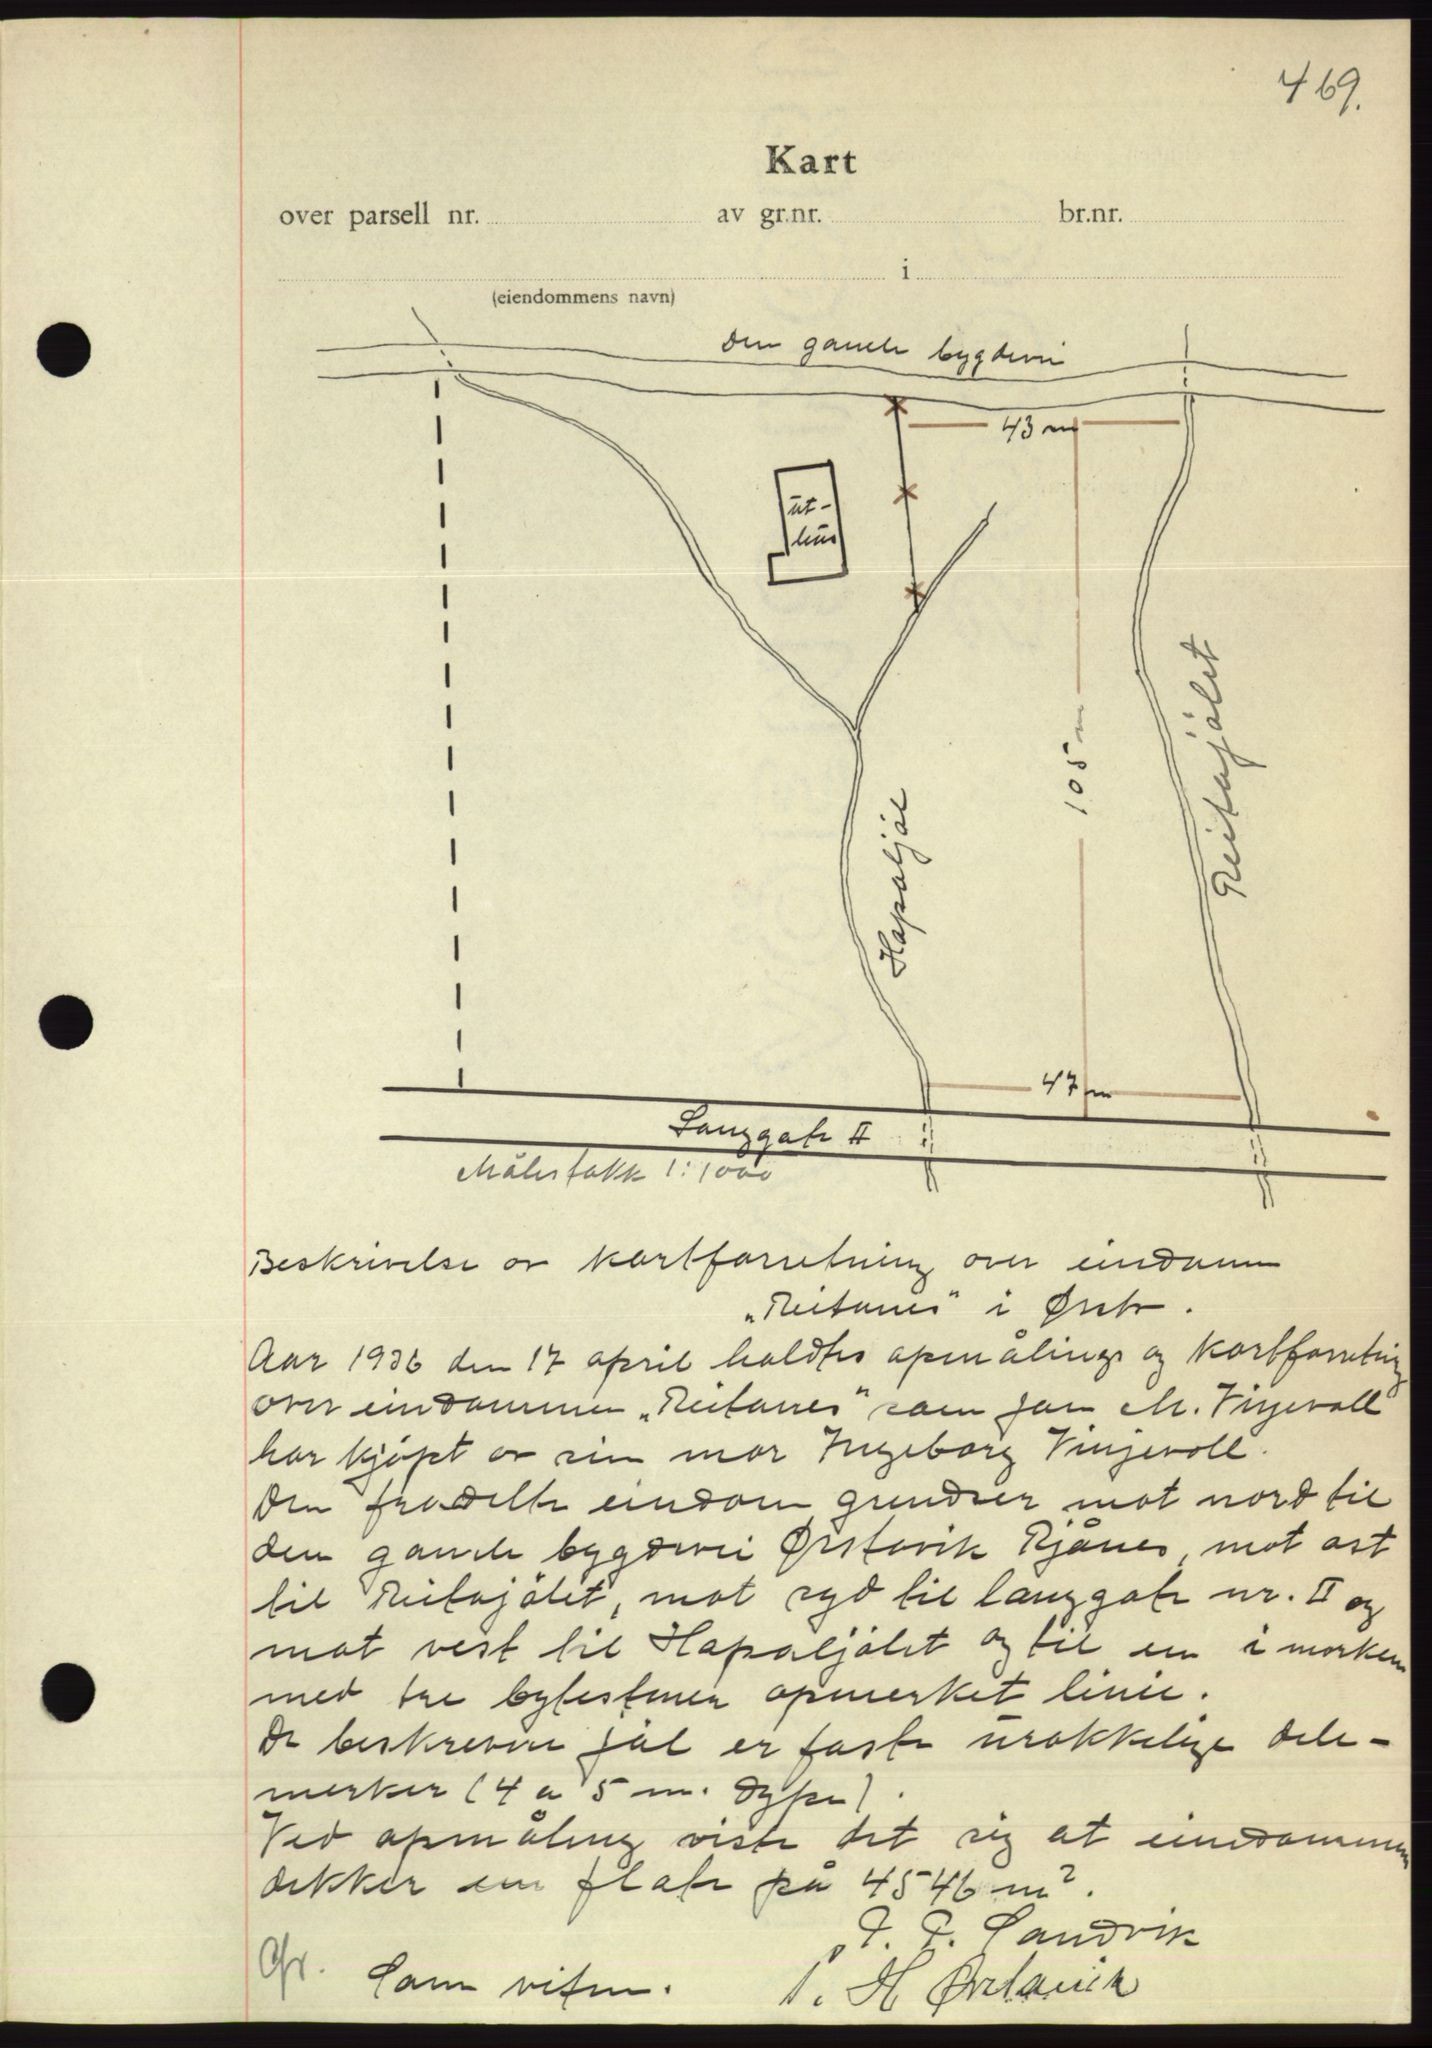 469.
Kart
over parsell nr. av gr.nr. br.nr.
i
(eiendommens navn)
den gamle bygdevei
43 m
ut-
hus
105 m
Reitajølet
Hapaljøl
47 m
Langgate II
Målestokk 1:1000
Beskrivelse av kartforretning over eiendom
"Reitanes" i Ørsta.
Aar 1936 den 17 april holdtes opmålings og kartforretning
over eiendommen "Reitanes" som Jon M. Vinjevoll
har kjøpt av sin mor Ingeborg Vinjevoll.
Den fradelte eiendom grendser mot nord til
den gamle bygdevei Ørstavik Rjånes, mot ost
til Reitajølet, mot syd til langgate nr. II og
mot vest til Hapaljølet og til en i marken
med tre bytestener opmerket linie.
De beskrevne jøl er faste urokkelige dele-
merker (4 a 5 m. dype).
Ved opmåling viste det sig at eiendommen
dekker en flate på 4546 m².
P. P. Sandvik
Som viten. P. H Ørstavik